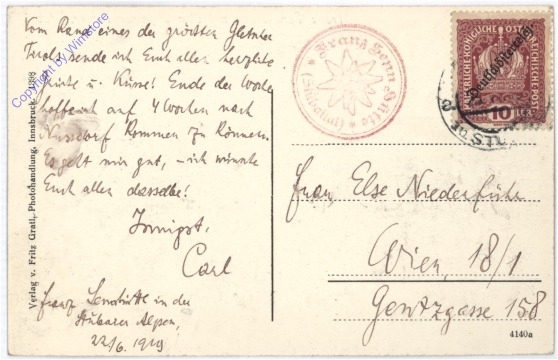 Vom Rand eines der größten Gletscher
Tirols sende ich Euch allen herzlichste
Grüße u. Küsse! Ende der Woche
hoffe ich auf 4 Wochen nach
Nussdorf kommen zu können.
Es geht mir gut, – ich wünsche
Euch allen dasselbe!
Innigst.
Carl
Franz Sennhütte in den
Stubaier Alpen,
22/6. 1919
Verlag v. Fritz Gratl, Photohandlung, Innsbruck
Copyright by Winstore
Franz Senn Hütte
(Stubai)
KAISERLICHE KÖNIGLICHE ÖSTERREICHISCHE POST
Deutschösterreich
10
Frau Else Niederführ
Wien, 18/1
Gentzgasse 158
4140a